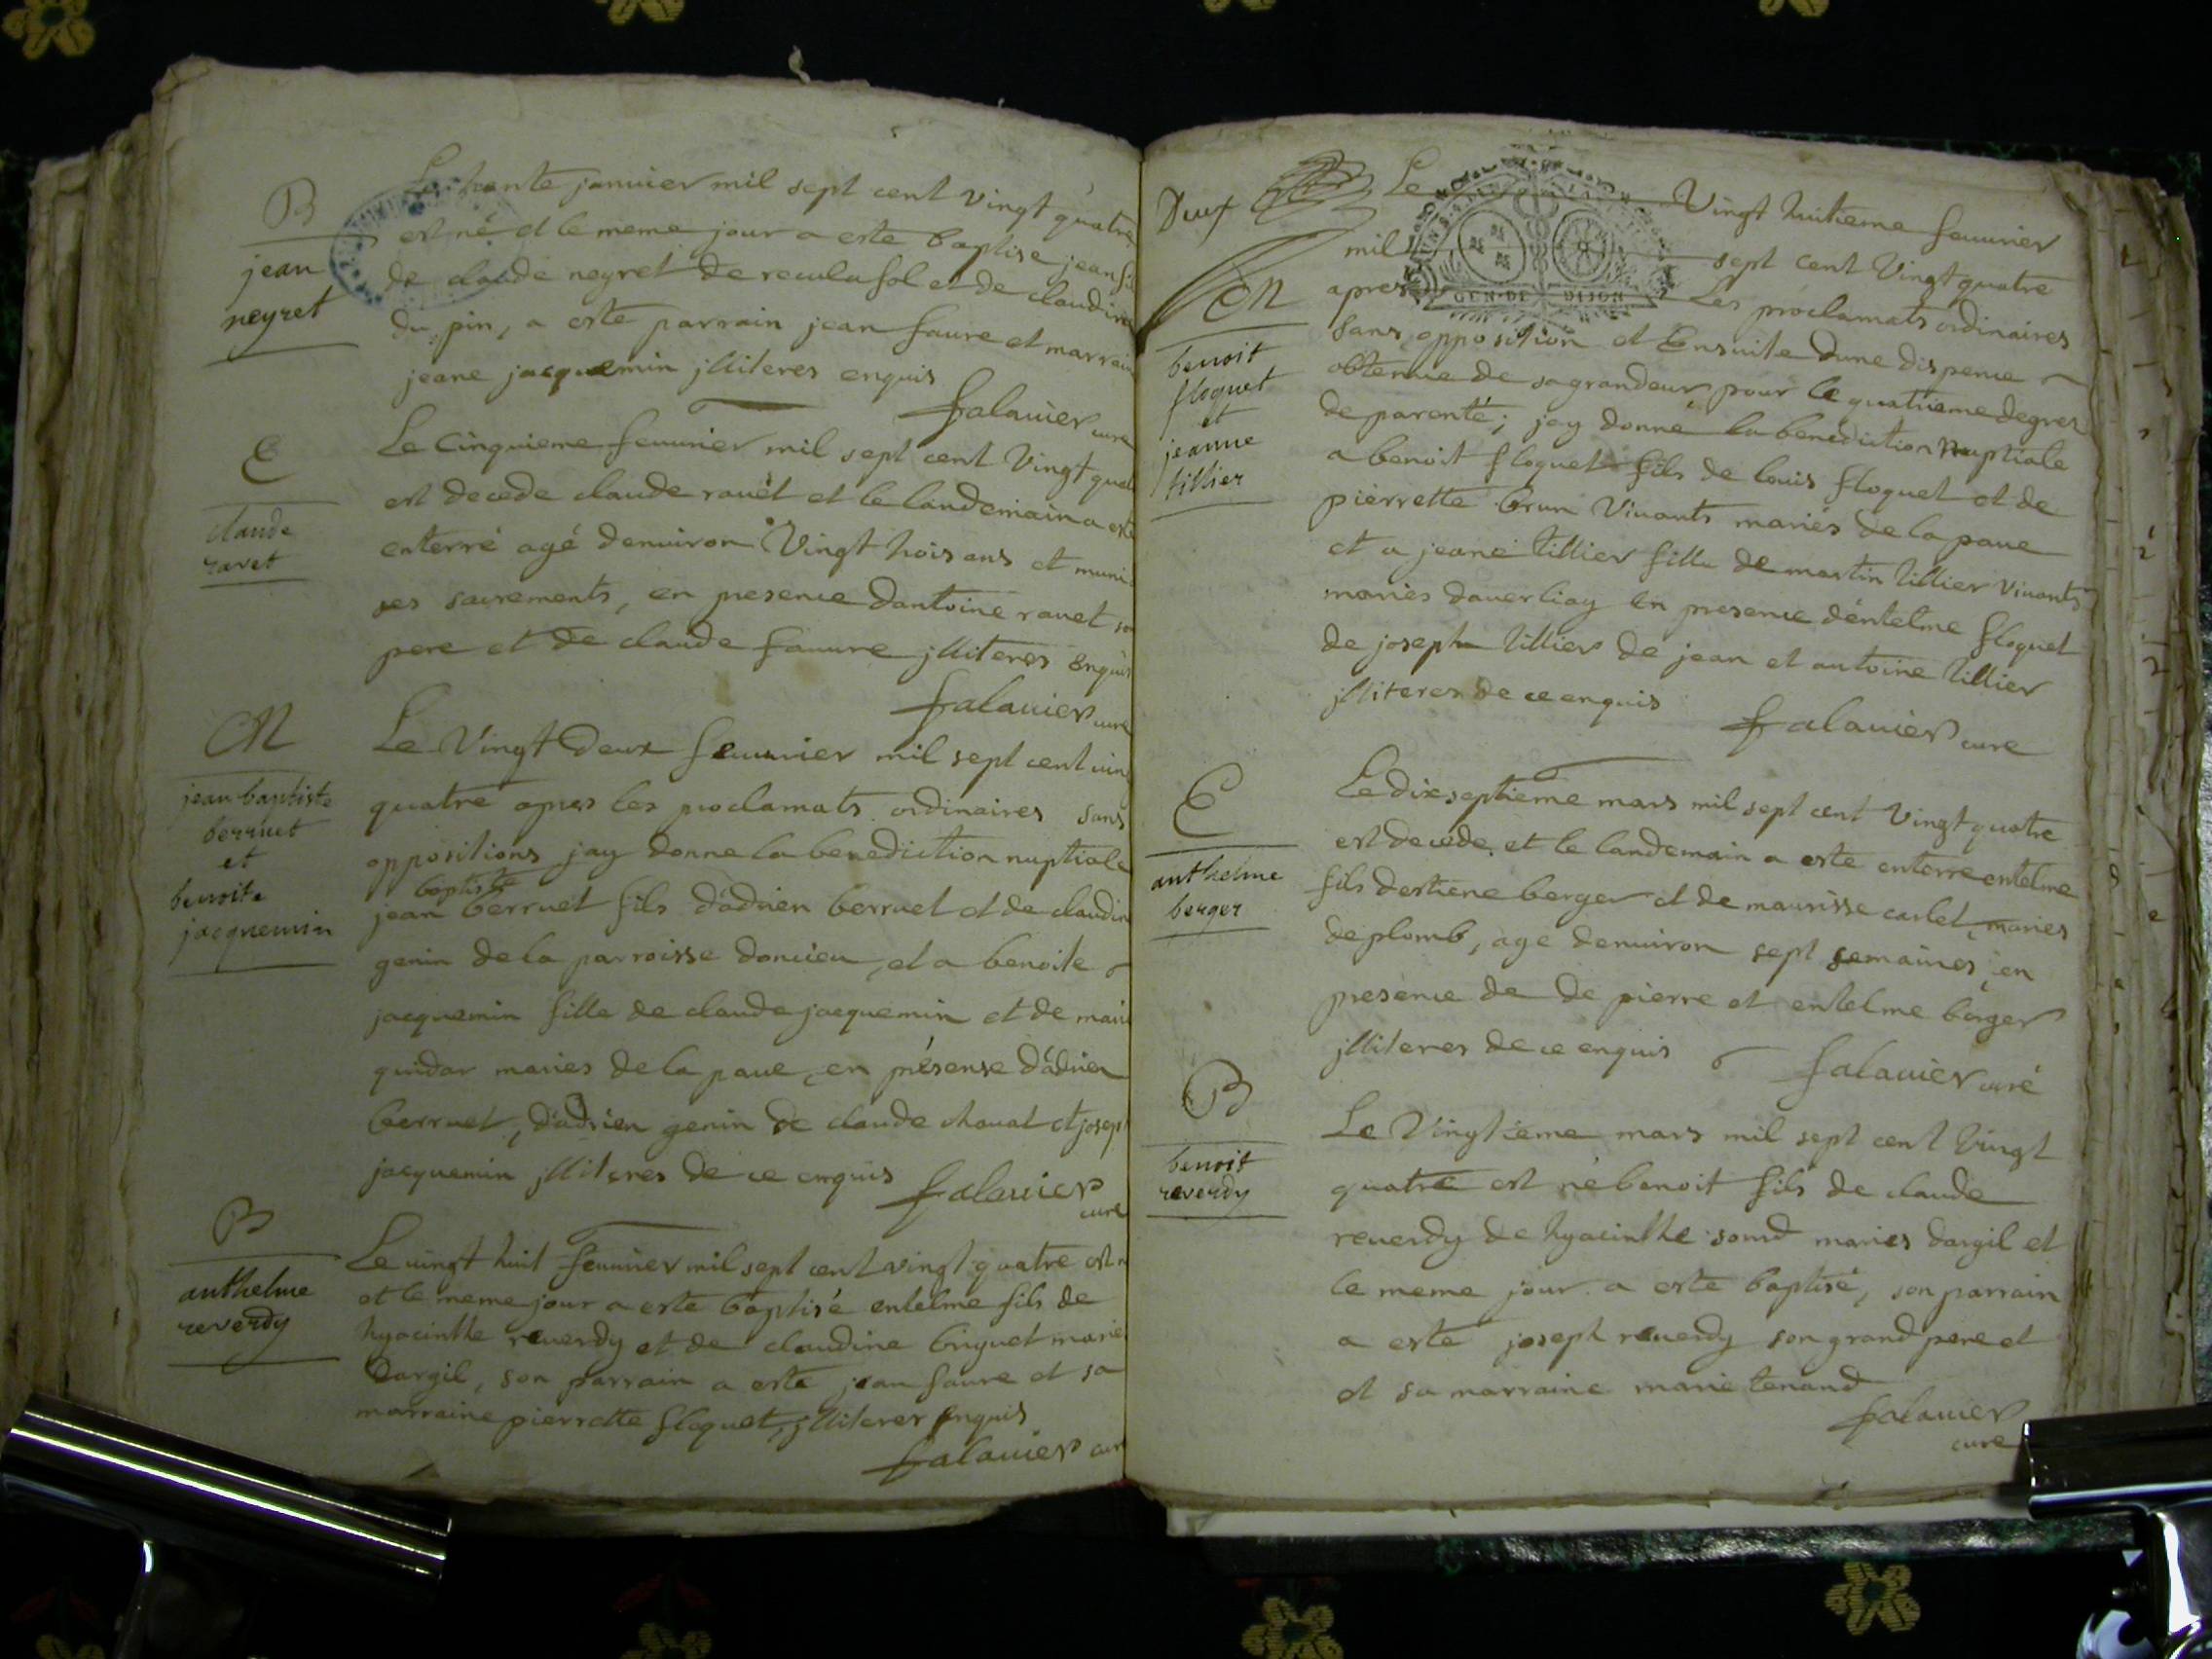 B
jean
neyret
Le trente janvier mil sept cent vingt quatre
est né et le meme jour a este baptise jean fil
de claude neyret de reculafol et de claudine
du pin, a este parrain jean faure et marrain
jeane jacquemin jlliteres enquis
falauier cure
E
claude
ravet
Le Cinquieme feuurier mil sept cent Vingt quat
est decede claude rauet et le landemain a este
enterré agé denuiron Vingt trois ans et muni
ses sacrements, en presence dantoine rauet son
pere et de claude fauure jlliteres enquis
falauier cure
M
jean baptiste
berruet
et
benoite
jacquemin
Le Vingt Deux feuurier mil sept cent uin
quatre apres les proclamats ordinaires sans
oppositions jay donne la benediction nuptiale
baptiste
jean berruet fils d'adrien berruet et de claudin
genin de la parroisse doncieu, et a benoite
jacquemin fille de claude jacquemin et de mari
guidar maries de la paue, en présense d'adrien
berruet, d'adrien genin de claude chouat et josep
jacquemin jlliteres de ce enquis
falauier
cure
B
anthelme
reverdy
Le uingt huit feuurier mil sept cent vingt quatre est n
et le meme jour a este baptisé entelme fils de
hyacinthe reuerdy et de claudine briguet marie
Dargil, son parrain a este jean faure et sa
marraine pierrette floquet, jlliteres enquis
falauier cure
Deux
Le Vingt huitieme feuurier
mil sept cent Vingt quatre
apres Les proclamats ordinaires
GEN. DE DIJON
M
benoit
floquet
et
jeanne
tillier
sans opposition et Ensuite dune dispence
obtenue de sa grandeur pour le quatrieme degres
de parenté; jay donné la benediction nuptiale
a benoit floquet fils de louis floquet et de
pierrette brun Viuants mariés de la paue
et a jeane tillier fille de martin tillier viuants
mariés dauerliay en presence d'entelme floquet
de joseph tillier de jean et antoine tillier
jlliteres de ce enquis
falauier cure
E
anthelme
berger
Le dix septieme mars mil sept cent Vingt quatre
est decede, et le landemain a este enterre entelme
fils destiene berger et de maurisse carlet, maries
de plomb, age denuiron sept semaines, en
presence de de pierre et entelme berger
jlliteres de ce enquis
falauier curé
B
benoit
reverdy
Le Vingtieme mars mil sept cent Vingt
quatre est né benoit fils de claude
reuerdy de hyacinthe somd maries dargil et
le meme jour a este baptisé, son parrain
a este joseph reuerdy son grand pere et
et sa marraine marie tenand
falauier
cure